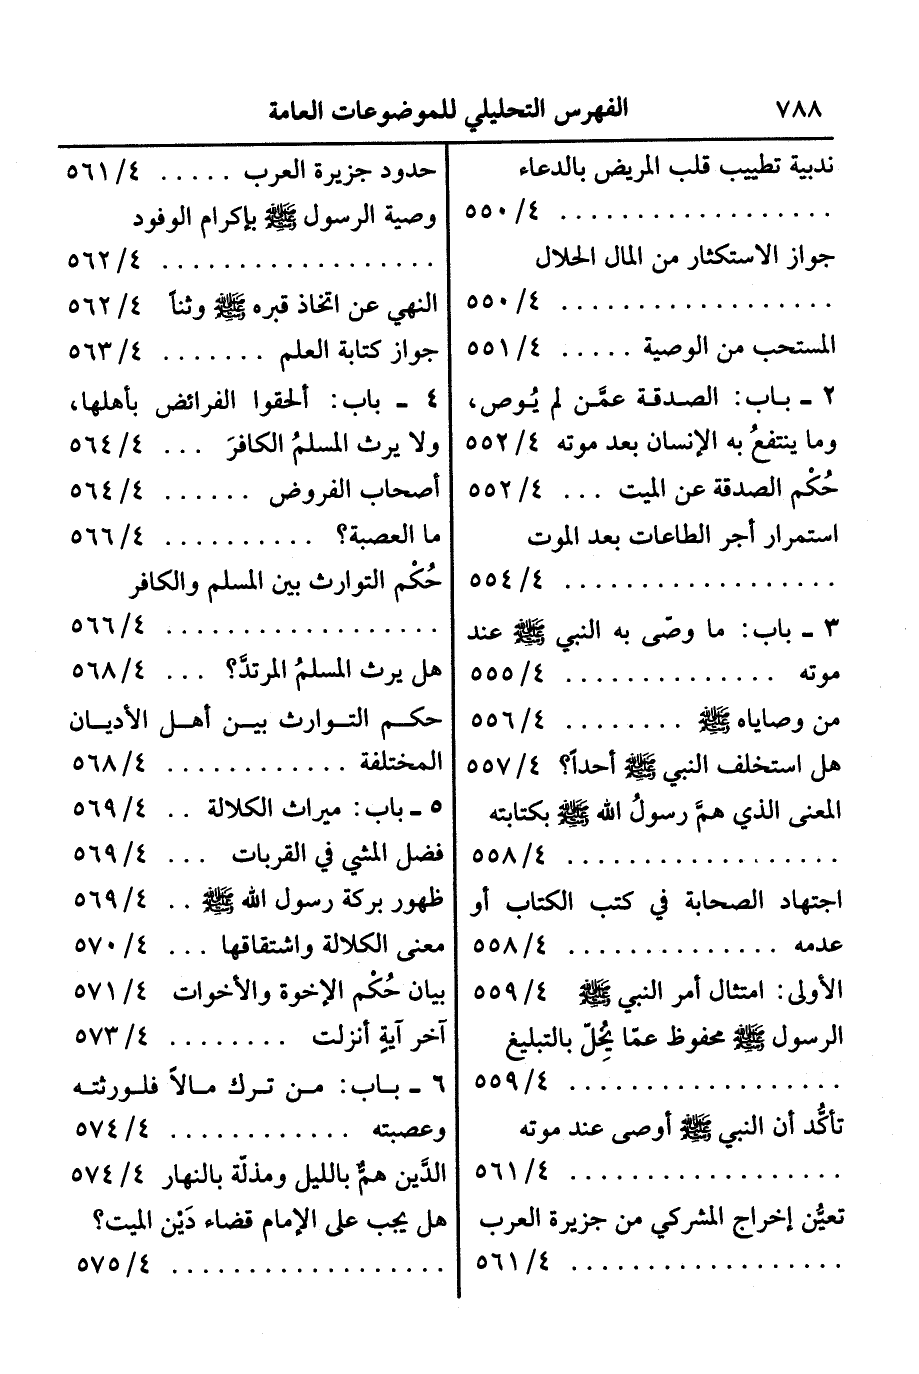 ٧٨٨ الفهرس التحليلي للموضوعات العامة
ندبية تطييب قلب المريض بالدعاء
. . . . . . . . . . . . . . . . . . ٥٥٠/٤
جواز الاستكثار من المال الحلال
. . . . . . . . . . . . . . . . . . ٥٥٠/٤
المستحب من الوصية . . . . . ٥٥١/٤
٢ ـ باب: الصدقة عمَّن لم يُوصِ،
وما ينتفعُ به الإنسان بعد موته ٥٥٢/٤
حُكْم الصدقة عن الميت . . . ٥٥٢/٤
استمرار أجر الطاعات بعد الموت
. . . . . . . . . . . . . . . . . . ٥٥٤/٤
٣ ـ باب: ما وصّى به النبي ﷺ عند
موته . . . . . . . . . . . . . . ٥٥٥/٤
من وصاياه ﷺ . . . . . . . . ٥٥٦/٤
هل استخلف النبي ﷺ أحداً؟ ٥٥٧/٤
المعنى الذي همَّ رسولُ الله ﷺ بكتابته
. . . . . . . . . . . . . . . . . . ٥٥٨/٤
اجتهاد الصحابة في كتب الكتاب أو
عدمه . . . . . . . . . . . . . . ٥٥٨/٤
الأولى: امتثال أمر النبي ﷺ ٥٥٩/٤
الرسول ﷺ محفوظ عمّا يُخِلّ بالتبليغ
. . . . . . . . . . . . . . . . . . ٥٥٩/٤
تأكُّد أن النبي ﷺ أوصى عند موته
. . . . . . . . . . . . . . . . . . ٥٦١/٤
تعيُّن إخراج المشركي من جزيرة العرب
. . . . . . . . . . . . . . . . . . ٥٦١/٤
حدود جزيرة العرب . . . . . ٥٦١/٤
وصية الرسول ﷺ بإكرام الوفود
. . . . . . . . . . . . . . . . . . ٥٦٢/٤
النهي عن اتخاذ قبره ﷺ وثناً ٥٦٢/٤
جواز كتابة العلم . . . . . . . ٥٦٣/٤
٤ ـ باب: ألحقوا الفرائض بأهلها،
ولا يرث المسلمُ الكافرَ . . . ٥٦٤/٤
أصحاب الفروض . . . . . . ٥٦٤/٤
ما العصبة؟ . . . . . . . . . . ٥٦٦/٤
حُكْم التوارث بين المسلم والكافر
. . . . . . . . . . . . . . . . . . ٥٦٦/٤
هل يرث المسلمُ المرتدَّ؟ . . . ٥٦٨/٤
حكم التوارث بين أهل الأديان
المختلفة . . . . . . . . . . . . ٥٦٨/٤
٥ ـ باب: ميراث الكلالة . . ٥٦٩/٤
فضل المشي في القربات . . . ٥٦٩/٤
ظهور بركة رسول الله ﷺ . . ٥٦٩/٤
معنى الكلالة واشتقاقها . . . ٥٧٠/٤
بيان حُكْم الإخوة والأخوات ٥٧١/٤
آخر آيةٍ أنزلت . . . . . . . . ٥٧٣/٤
٦ ـ باب: من ترك مالاً فلورثته
وعصبته . . . . . . . . . . . . ٥٧٤/٤
الدَّين همٌّ بالليل ومذلّة بالنهار ٥٧٤/٤
هل يجب على الإمام قضاء دَيْن الميت؟
. . . . . . . . . . . . . . . . . . ٥٧٥/٤